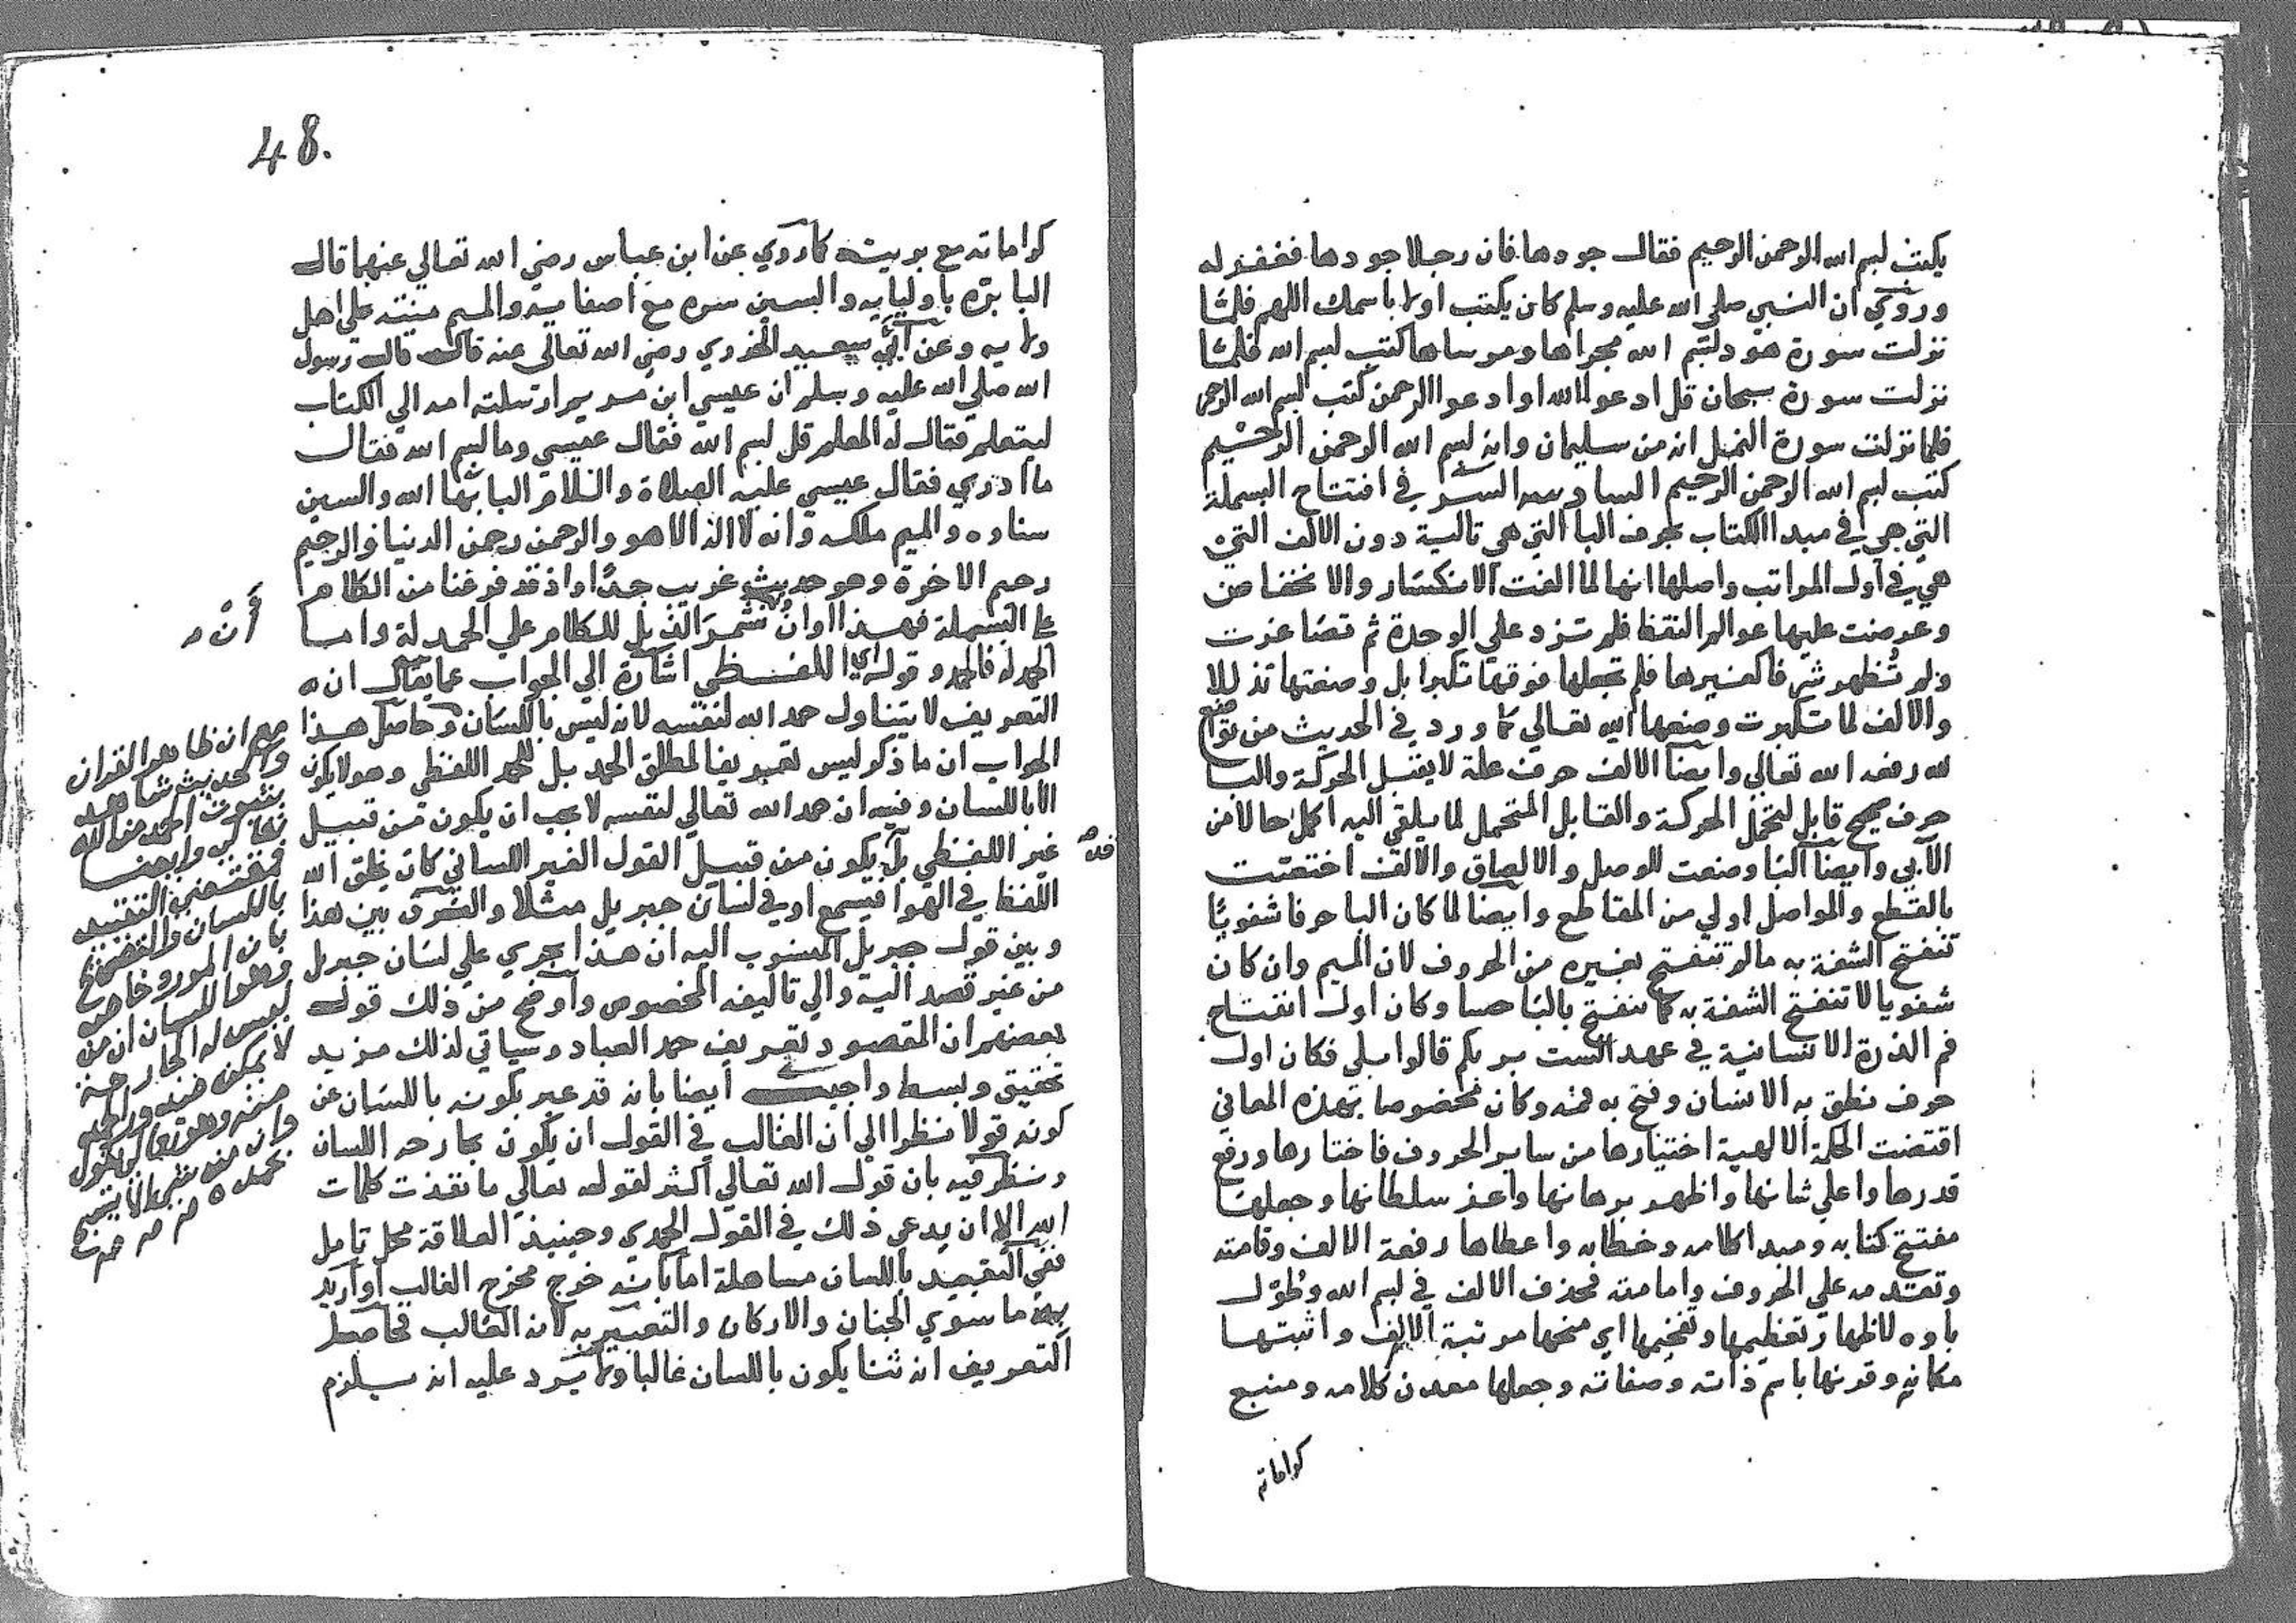 يكتب لبسم الله الرحمن الرحيم فقال جودها فان رجلا جودها فغفر له
وروي ان النبي صلى الله عليه وسلم كان يكتب اولا باسمك اللهم فلما
نزلت سورة هود لبسم الله مجراها ومرساها كتب لبسم الله فلما
نزلت سورة سبحان قل ادعوا الله او ادعوا الرحمن كتب لبسم الله الرحمن
فلما نزلت سورة النمل انه من سليمان وانه لبسم الله الرحمن الرحيم
كتب لبسم الله الرحمن الرحيم السادسه السر في افتتاح البسملة
التي هي في مبدا الكتاب بحرف البا التي هي تالية دون الالف التي
هي في اول المراتب واصلها انها لما الفت الانكسار والانخفاض
وعرضت عليها عوالم النقط فلم تزد على الوحدة ثم تضاعفت
ولم تظهر شي فاكغيرها فلم تجعلها فوقها تكبرا بل وضعتها تذللا
والالف لما تكبرت وضعها الله تعالى كما ورد في الحديث من تواضع
لله رفعه الله تعالى وايضا الالف حرف علة لا يقبل الحركة والبا
حرف صحيح قابل لتحمل الحركة والقابل المتحمل لما يلقى اليه اكمل حالا من
الآبي وايضا البا وضعت للوصل والالصاق والالف اختصت
بالقطع والمواصل اولى من المقاطع وايضا لما كان البا حرفا شفويا
تنفتح الشفة به مالم تنفتح بغيره من الحروف لان الميم وان كان
شفويا لا تنفتح الشفة به كما تنفتح بالبا حسا وكان اول انفتاح
فم الذرة الانسانية في عهد الست بربكم قالوا بلى فكان اول
حرف نطق به الانسان وفتح به فمه وكان مخصوصا بهذه المعاني
اقتضت الحكمة الالهية اختيارها من ساير الحروف فاختارها ورفع
قدرها واعلى شانها واظهر برهانها واعز سلطانها وجعلها
مفتتح كتابه ومبدا كلامه وخطابه واعطاها رفعة الالف وقامته
وتقدمه على الحروف وامامته فحذف الالف في لبسم الله وطول
باوه لاظهار تعظيمها وتفخيمها اي منحها مرتبة الالف واثبتها
مكانه وقرنها باسم ذاته وصفاته وجعلها معدن كلامه ومنبع
كراماته
48.
كراماته مع بريته كما روي عن ابن عباس رضي الله تعالى عنهما قال
البا بره باوليايه والسين سره مع اصفيايه والميم منته على اهل
ولايه وعن ابي سعيد الخدري رضي الله تعالى عنه قال قال رسول
الله صلى الله عليه وسلم ان عيسى ابن مريم ارسلته امه الى الكتاب
ليتعلم فقال له المعلم قل لبسم الله فقال عيسى وما لبسم الله فقال
ما ادري فقال عيسى عليه الصلاة والسلام البا بها الله والسين
سناوه والميم ملكه وانه لا اله الا هو والرحمن رحمن الدنيا والرحيم
رحيم الاخرة وهو حديث غريب جدا واذ قد فرغنا من الكلام
على البسملة فهذا اوان نشمر الذيل للكلام على الحمدلة واما
أن
الحمدلة فالحمد وقوله اي اللفظي اشارة الى الجواب عما يقال ان
التعريف لا يتناول حمد الله لنفسه لانه ليس باللسان وحاصل هذا
الجواب ان ما ذكر ليس تعريفا لمطلق الحمد بل للحمد اللفظي وهو لا يكون
الا باللسان وفيه ان حمد الله تعالى لنفسه لا يجب ان يكون من قبيل
غير اللفظي بل يكون من قبيل القول الغير اللساني كان يخلق الله
قد
اللفظ في الهوا فيسمع او في لسان جبريل مثلا والفرق بين هذا
وبين قول جبريل المنسوب اليه ان هذا يجري على لسان جبريل
من غير قصد اليه والى تاليفه المخصوص واوضح من ذلك قول
بعضهم ان المقصود تعريف حمد العباد وسياتي لذلك مزيد
تحقيق وبسط واجيب ايضا بانه قد عبر بكونه باللسان عن
كونه قولا نظرا الى ان الغالب في القول ان يكون بجارحه اللسان
ونظر فيه بان قول الله تعالى اكثر لقوله تعالى ما نفذت كلمات
الله الا ان يدعى ذلك في القول الحمدي وحينيذ العلاقة محل تامل
ففي التقييد باللسان مساهلة اما بانه خرج مخرج الغالب او اريد
به ما سوى الجنان والاركان والتعبير به لانه الغالب فحاصل
التعريف انه ثنا يكون باللسان غالبا ولا يرد عليه انه يلزم
مع ان ظاهر القران
والحديث شاهد
بثبوت الحمد من الله
تعالى وايضا
فمقتضى التقييد
باللسان والتصريح
بان المورد خاص
وهو اللسان ان من
ليس له الجارحة
لا يمكن صدور الحمد
منه وهو تعالى يقول
وان من شي الا يسبح
بحمده